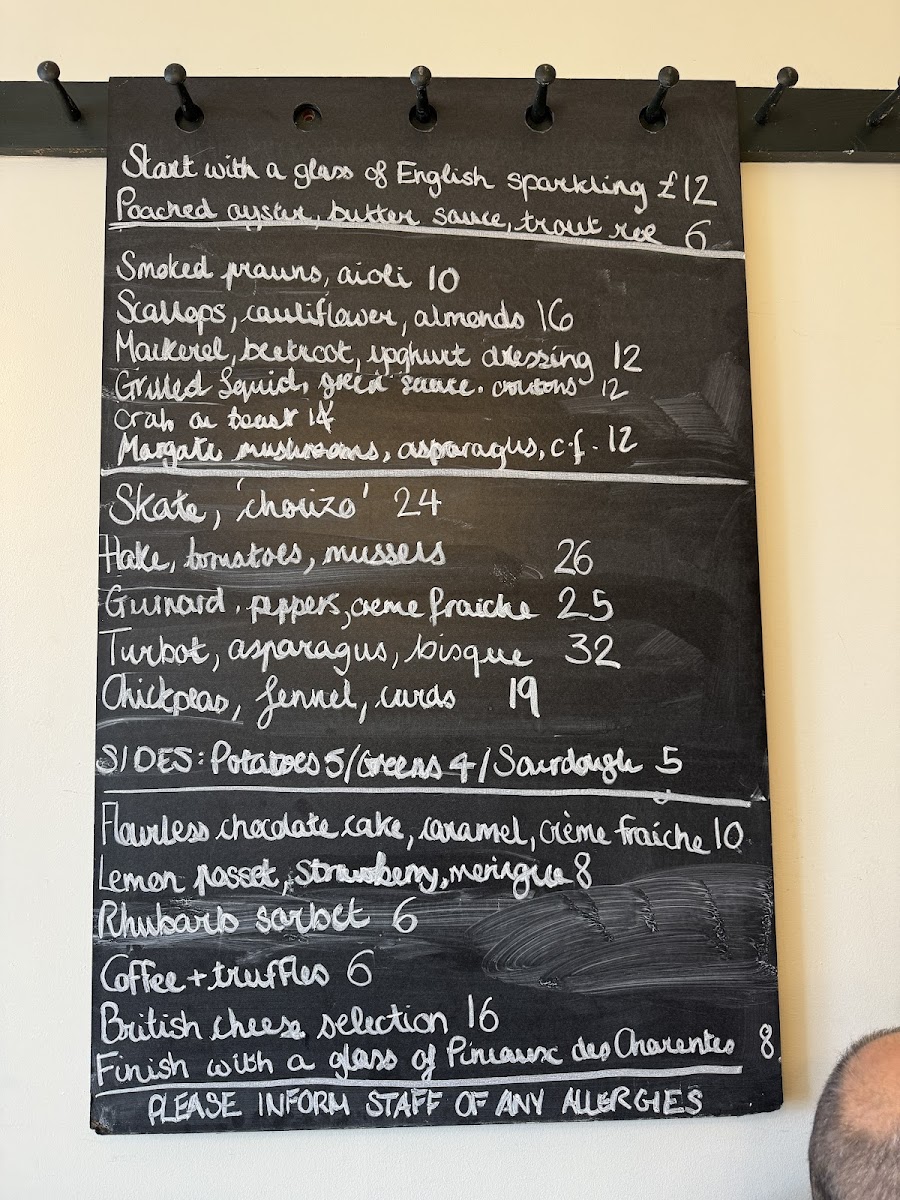 Start with a glass of English sparkling £12
Poached oyster, butter sauce, trout roe 6
Smoked prawns, aioli 10
Scallops, cauliflower, almonds 16
Mackerel, beetroot, yoghurt dressing 12
Grilled Squid, green sauce, croutons 12
Crab on toast 14
Margate mushrooms, asparagus, c.f. 12
Skate, 'chorizo' 24
Hake, tomatoes, mussels 26
Gurnard, peppers, creme fraiche 25
Turbot, asparagus, bisque 32
Chickpeas, fennel, curds 19
SIDES: Potatoes 5/Greens 4/Sourdough 5
Flourless chocolate cake, caramel, crème fraîche 10
Lemon posset, strawberry, meringue 8
Rhubarb sorbet 6
Coffee + truffles 6
British cheese selection 16
Finish with a glass of Pineaux des Charentes 8
PLEASE INFORM STAFF OF ANY ALLERGIES